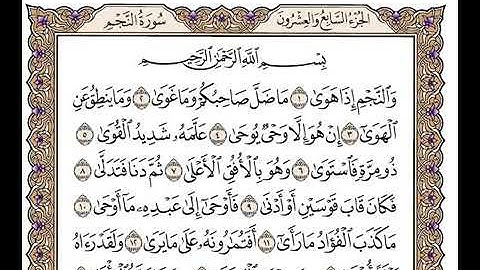 الجزء السابع والعشرون
سورة النجم
بِسْمِ ٱللَّهِ ٱلرَّحْمَٰنِ ٱلرَّحِيمِ
وَٱلنَّجْمِ إِذَا هَوَىٰ ١ مَا ضَلَّ صَاحِبُكُمْ وَمَا غَوَىٰ ٢ وَمَا يَنطِقُ عَنِ
ٱلْهَوَىٰٓ ٣ إِنْ هُوَ إِلَّا وَحْىٌ يُوحَىٰ ٤ عَلَّمَهُۥ شَدِيدُ ٱلْقُوَىٰ ٥
ذُو مِرَّةٍ فَٱسْتَوَىٰ ٦ وَهُوَ بِٱلْأُفُقِ ٱلْأَعْلَىٰ ٧ ثُمَّ دَنَا فَتَدَلَّىٰ ٨
فَكَانَ قَابَ قَوْسَيْنِ أَوْ أَدْنَىٰ ٩ فَأَوْحَىٰٓ إِلَىٰ عَبْدِهِۦ مَآ أَوْحَىٰ ١٠
مَا كَذَبَ ٱلْفُؤَادُ مَا رَأَىٰٓ ١١ أَفَتُمَٰرُونَهُۥ عَلَىٰ مَا يَرَىٰ ١٢ وَلَقَدْ رَءَاهُ